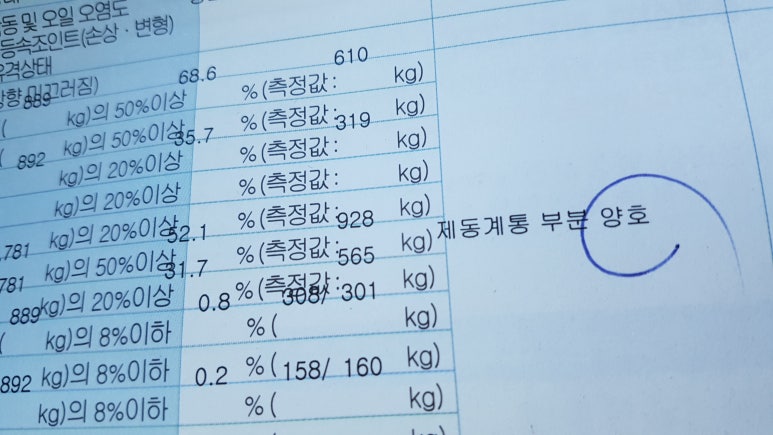 동 및 오일 오염도
등속조인트(손상 · 변형)
68.6 %(측정값: 610 kg)
889 kg)의 50%이상
%(측정값: kg)
892 kg)의 50%이상 35.7 %(측정값: 319 kg)
kg)의 20%이상 %(측정값: kg)
kg)의 20%이상 %(측정값: kg)
781 kg)의 20%이상 52.1 %(측정값: 928 kg) 제동계통 부분 양호
781 kg)의 50%이상 31.7 %(측정값: 565 kg)
889 kg)의 20%이상 0.8 %( 308/ 301 kg)
kg)의 8%이하 %( kg)
892 kg)의 8%이하 0.2 %( 158/ 160 kg)
kg)의 8%이하 %( kg)
kg)